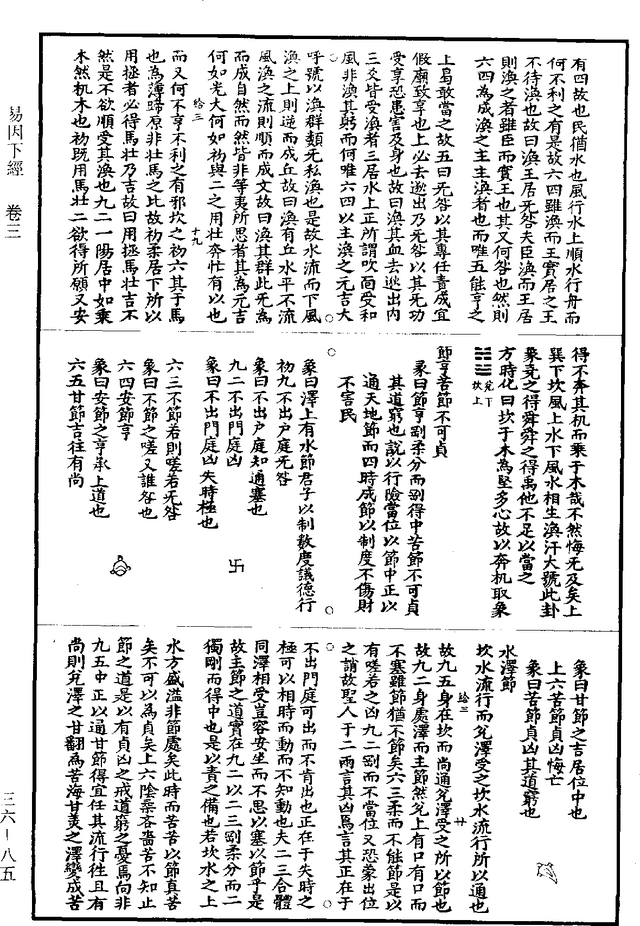 有四故也民猶水也風行水上順水行舟而
何不利之有是故六四雖渙而王實居之王
不待渙也故曰渙王居无咎夫臣渙而王居
則渙之者雖臣而實王也其又何咎也然則
六四為成渙之主主渙者也而唯五能享之
上曷敢當之故五曰无咎以其專任責成宜
假廟致享也上必去逖出乃无咎以其死功
受享恐患害及身也故曰渙其血去逖出内
三爻皆受渙者三居水上正所謂吹面受和
風非渙其躬而何唯六四以主渙之元吉大
呼號以渙群類无私渙也是故水流而下風
渙之上則逆而成丘故曰渙有丘水平不流
風渙之流則順而成文故曰渙其群此无為
而成自然而然皆非等夷所思者其為元吉
何如光大何如初與二之用壯奔忙有以也
而又何不亨不利之有邪坎之初六其于馬
也為薄蹄原非壯馬之比故初柔居下所以
用拯者必得馬壯乃吉故曰用拯馬壯吉不
然是不欲順受其渙也九二一陽居中如乗
木然机木也初既用馬壯二欲得所願又安
得不奔其机而乗于木哉不然悔无及矣上
巽下坎風上水下風水相生渙汗大號此卦
象堯之得舜舜之得禹他不足以當之
方時化曰坎于木為堅多心故以奔机取象
兊下
坎上
節亨苦節不可貞
彖曰節亨剛柔分而剛得中苦節不可貞
其道窮也說以行險當位以節中正以
通天地節而四時成節以制度不傷財
不害民
象曰澤上有水節君子以制數度議德行
初九不出户庭无咎
象曰不出户庭知通塞也
九二不出門庭凶
象曰不出門庭凶失時極也
六三不節若則嗟若无咎
象曰不節之嗟又誰咎也
六四安節亨
象曰安節之亨承上道也
六五甘節吉往有尚
象曰甘節之吉居位中也
上六苦節貞凶悔亡
象曰苦節貞凶其道窮也
水澤節
坎水流行而兊澤受之坎水流行所以通也
故九五身在坎而尚通兊澤受之所以節也
故九二身處澤而主節然兊上有口有口而
不塞雖節猶不節矣六三柔而不能節是以
有嗟若之凶九二剛而不當位又恐蒙出位
之誚故聖人于二兩言其凶焉言其正在于
不出門庭可出而不肯出也正在于失時之
極可以相時而動而不知動也夫二三合體
同澤相受豈容安坐而不思以塞以節乎是
故主節之道實在九二以二三剛柔分而二
獨剛而得中也是以責之備也若坎水之上
水方盛溢非節處矣此時而苦苦以節真苦
矣不可以為貞矣上六陰柔吝嗇苦不知止
節之道是以有貞凶之戒道窮之憂焉尚非
九五中正以通甘節得宜任其流行徃且有
尚則兊澤之甘翻為苦海甘美之澤變成苦
易因下經　卷三
三六-八五